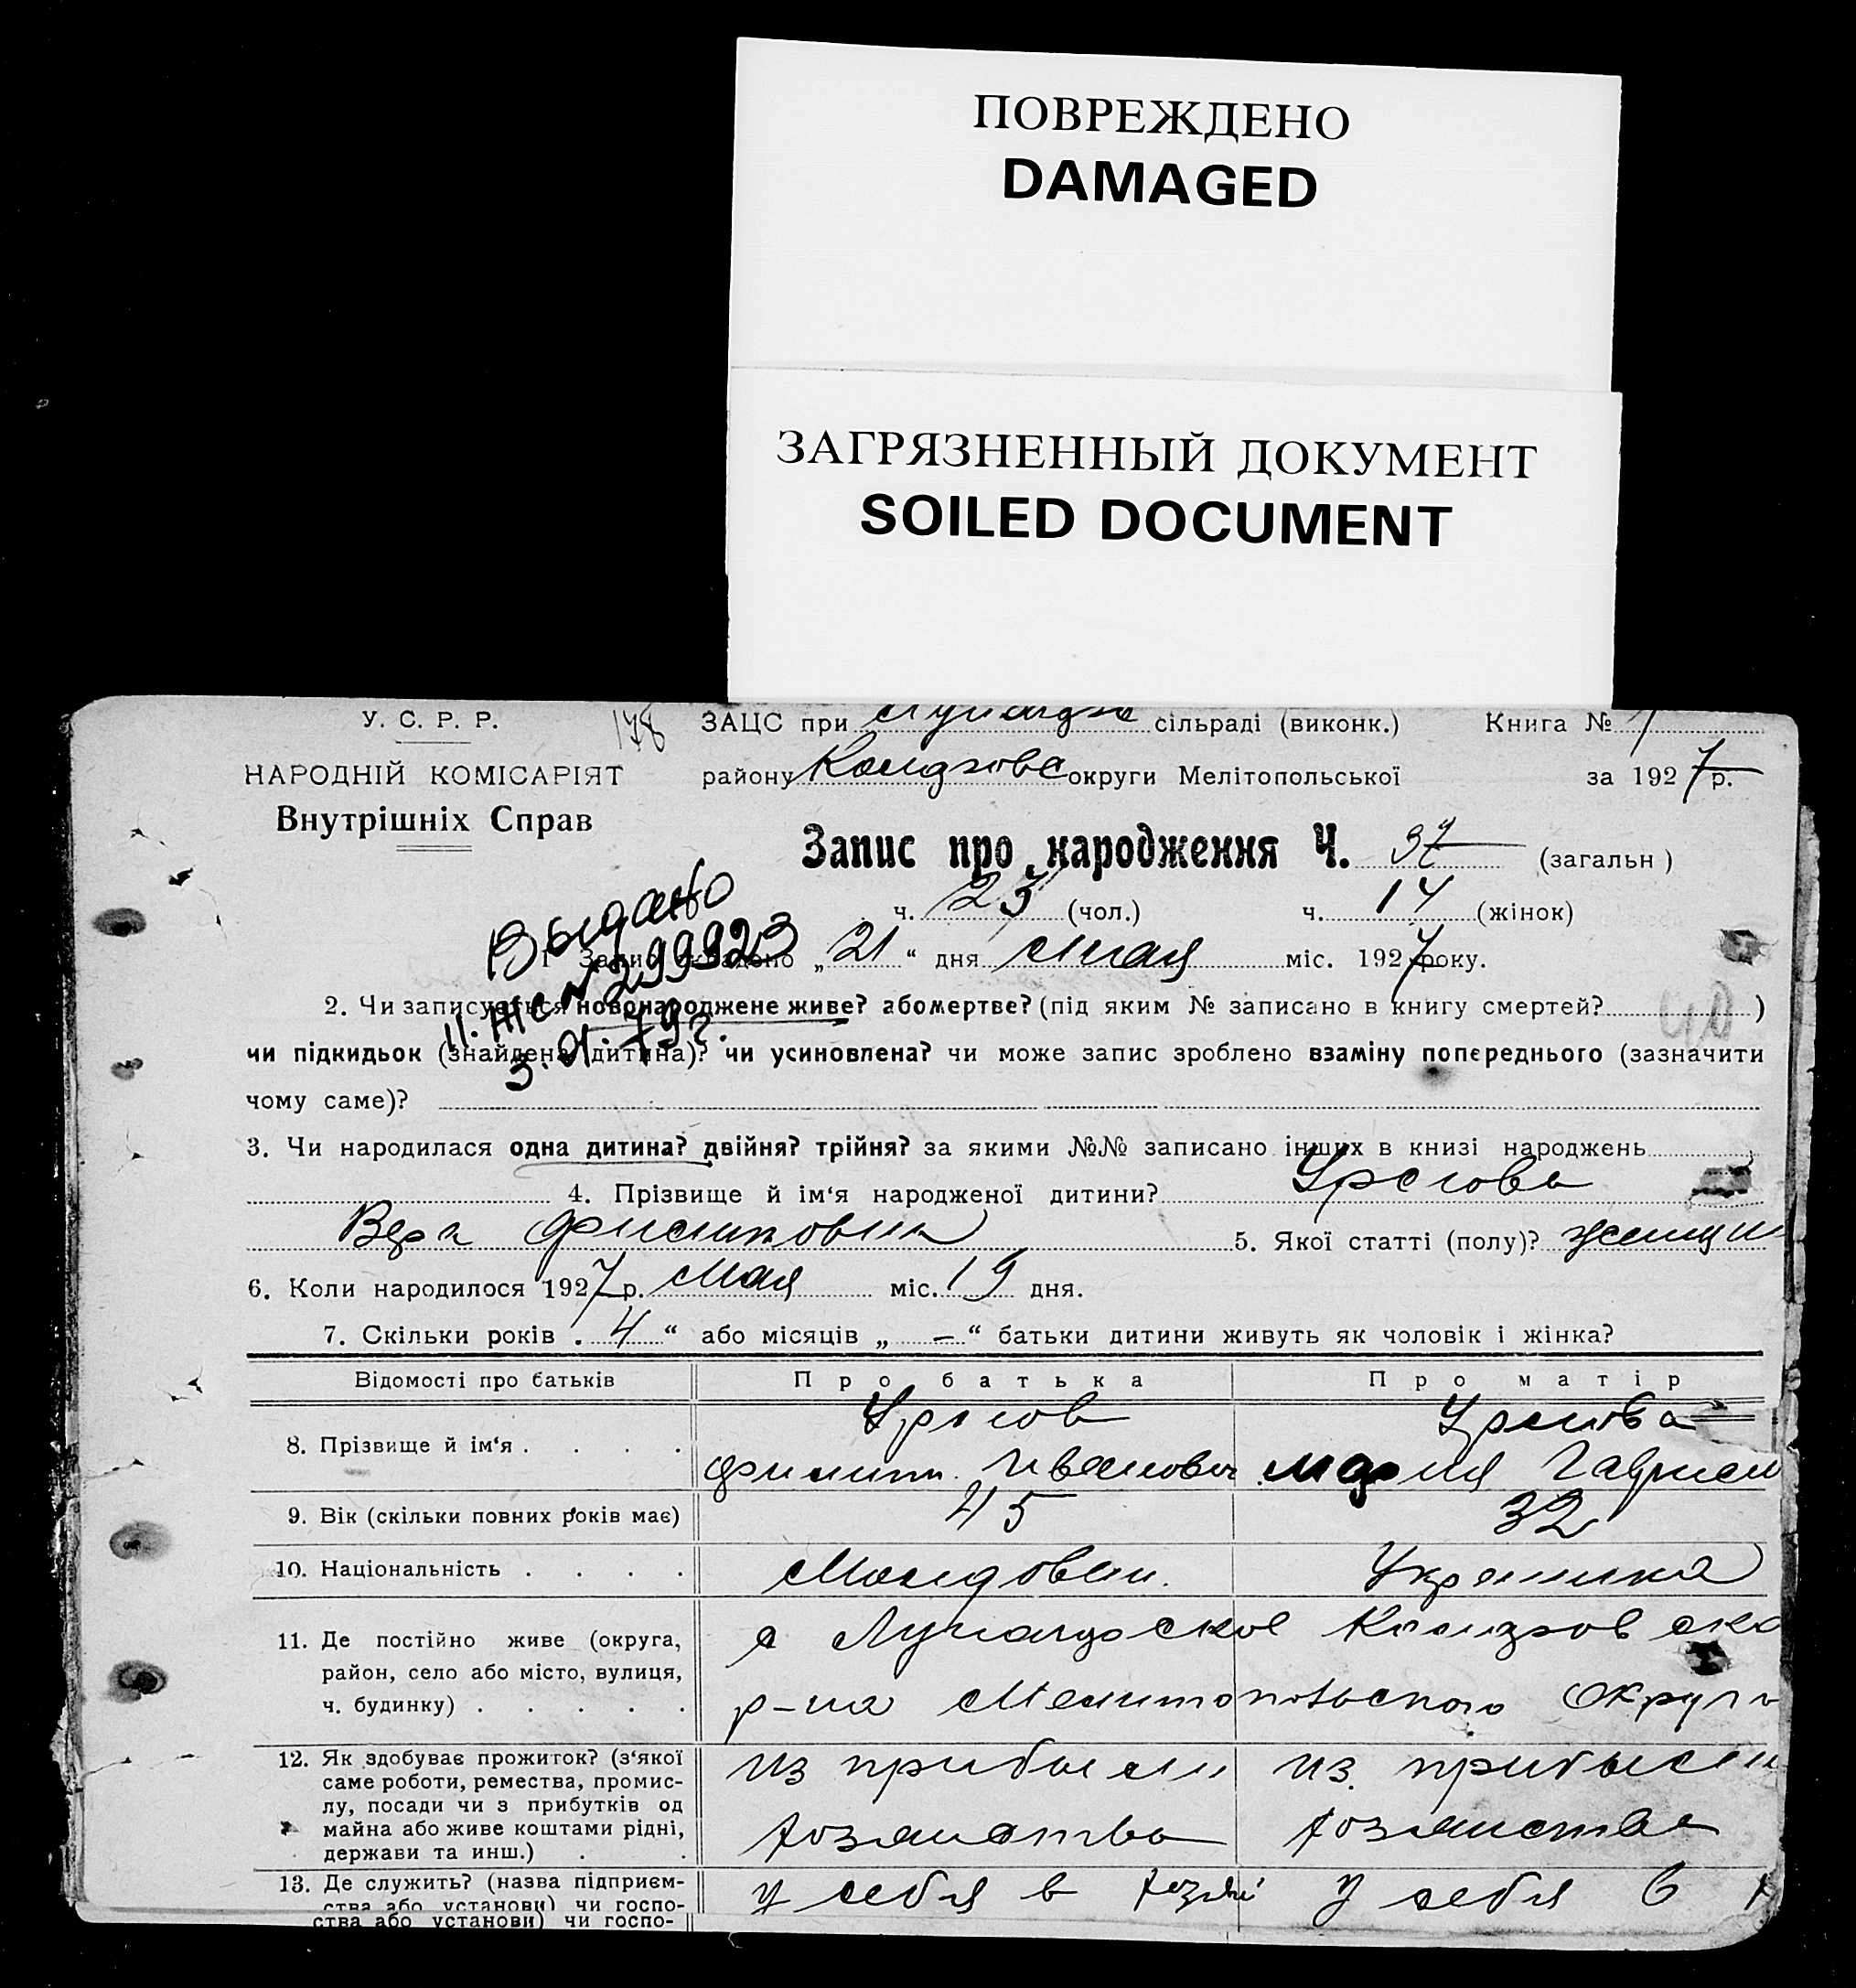 ПОВРЕЖДЕНО
DAMAGED
ЗАГРЯЗНЕННЫЙ ДОКУМЕНТ
SOILED DOCUMENT
У. С. Р. Р.
178
ЗАЦС при сільраді (виконк.) Книга № 1
НАРОДНІЙ КОМІСАРІЯТ
району округи Мелітопольської за 1927 р.
Внутрішніх Справ
Запис про народження Ч. 37 (загальн )
ч. 23 (чол.) ч. 14 (жінок)
Выдано
299923
3.01.79г.
1 Запис складено „21“ дня мая міс. 1927 року.
2. Чи записується новонароджене живе? або мертве? (під яким № записано в книгу смертей? )
чи підкидьок (знайдена дитина)? чи усиновлена? чи може запис зроблено взаміну попереднього (зазначити
чому саме)?
3. Чи народилася одна дитина? двійня? трійня? за якими №№ записано інших в книзі народжень
4. Прізвище й ім‘я народженої дитини? Урсова
Вера Филиповна 5. Якої статті (полу)? женщи
6. Коли народилося 1927 р. мая міс. 19 дня.
7. Скільки років „ 4 “ або місяців „ — “ батьки дитини живуть як чоловік і жінка?
Відомості про батьків Про батька Про матір
8. Прізвище й ім‘я . . . .
Урсов
Филипп Иванович
Урсова
Мария Гаврил
9. Вік (скільки повних років має) 45 32
10. Національність . . . . Молдован. Украинка
11. Де постійно живе (округа,
район, село або місто, вулиця,
ч. будинку) . . . . .
р-на Мелитопольского Округа
12. Як здобуває прожиток? (з‘якої
саме роботи, ремества, промис-
лу, посади чи з прибутків од
майна або живе коштами рідні,
держави та инш.) . .
из прибыли
хозяиства
из прибыли
хозяиства
13. Де служить? (назва підприєм-
ства або установи) чи госпо-
ства або установи) чи госпо-
у себя в у себя в